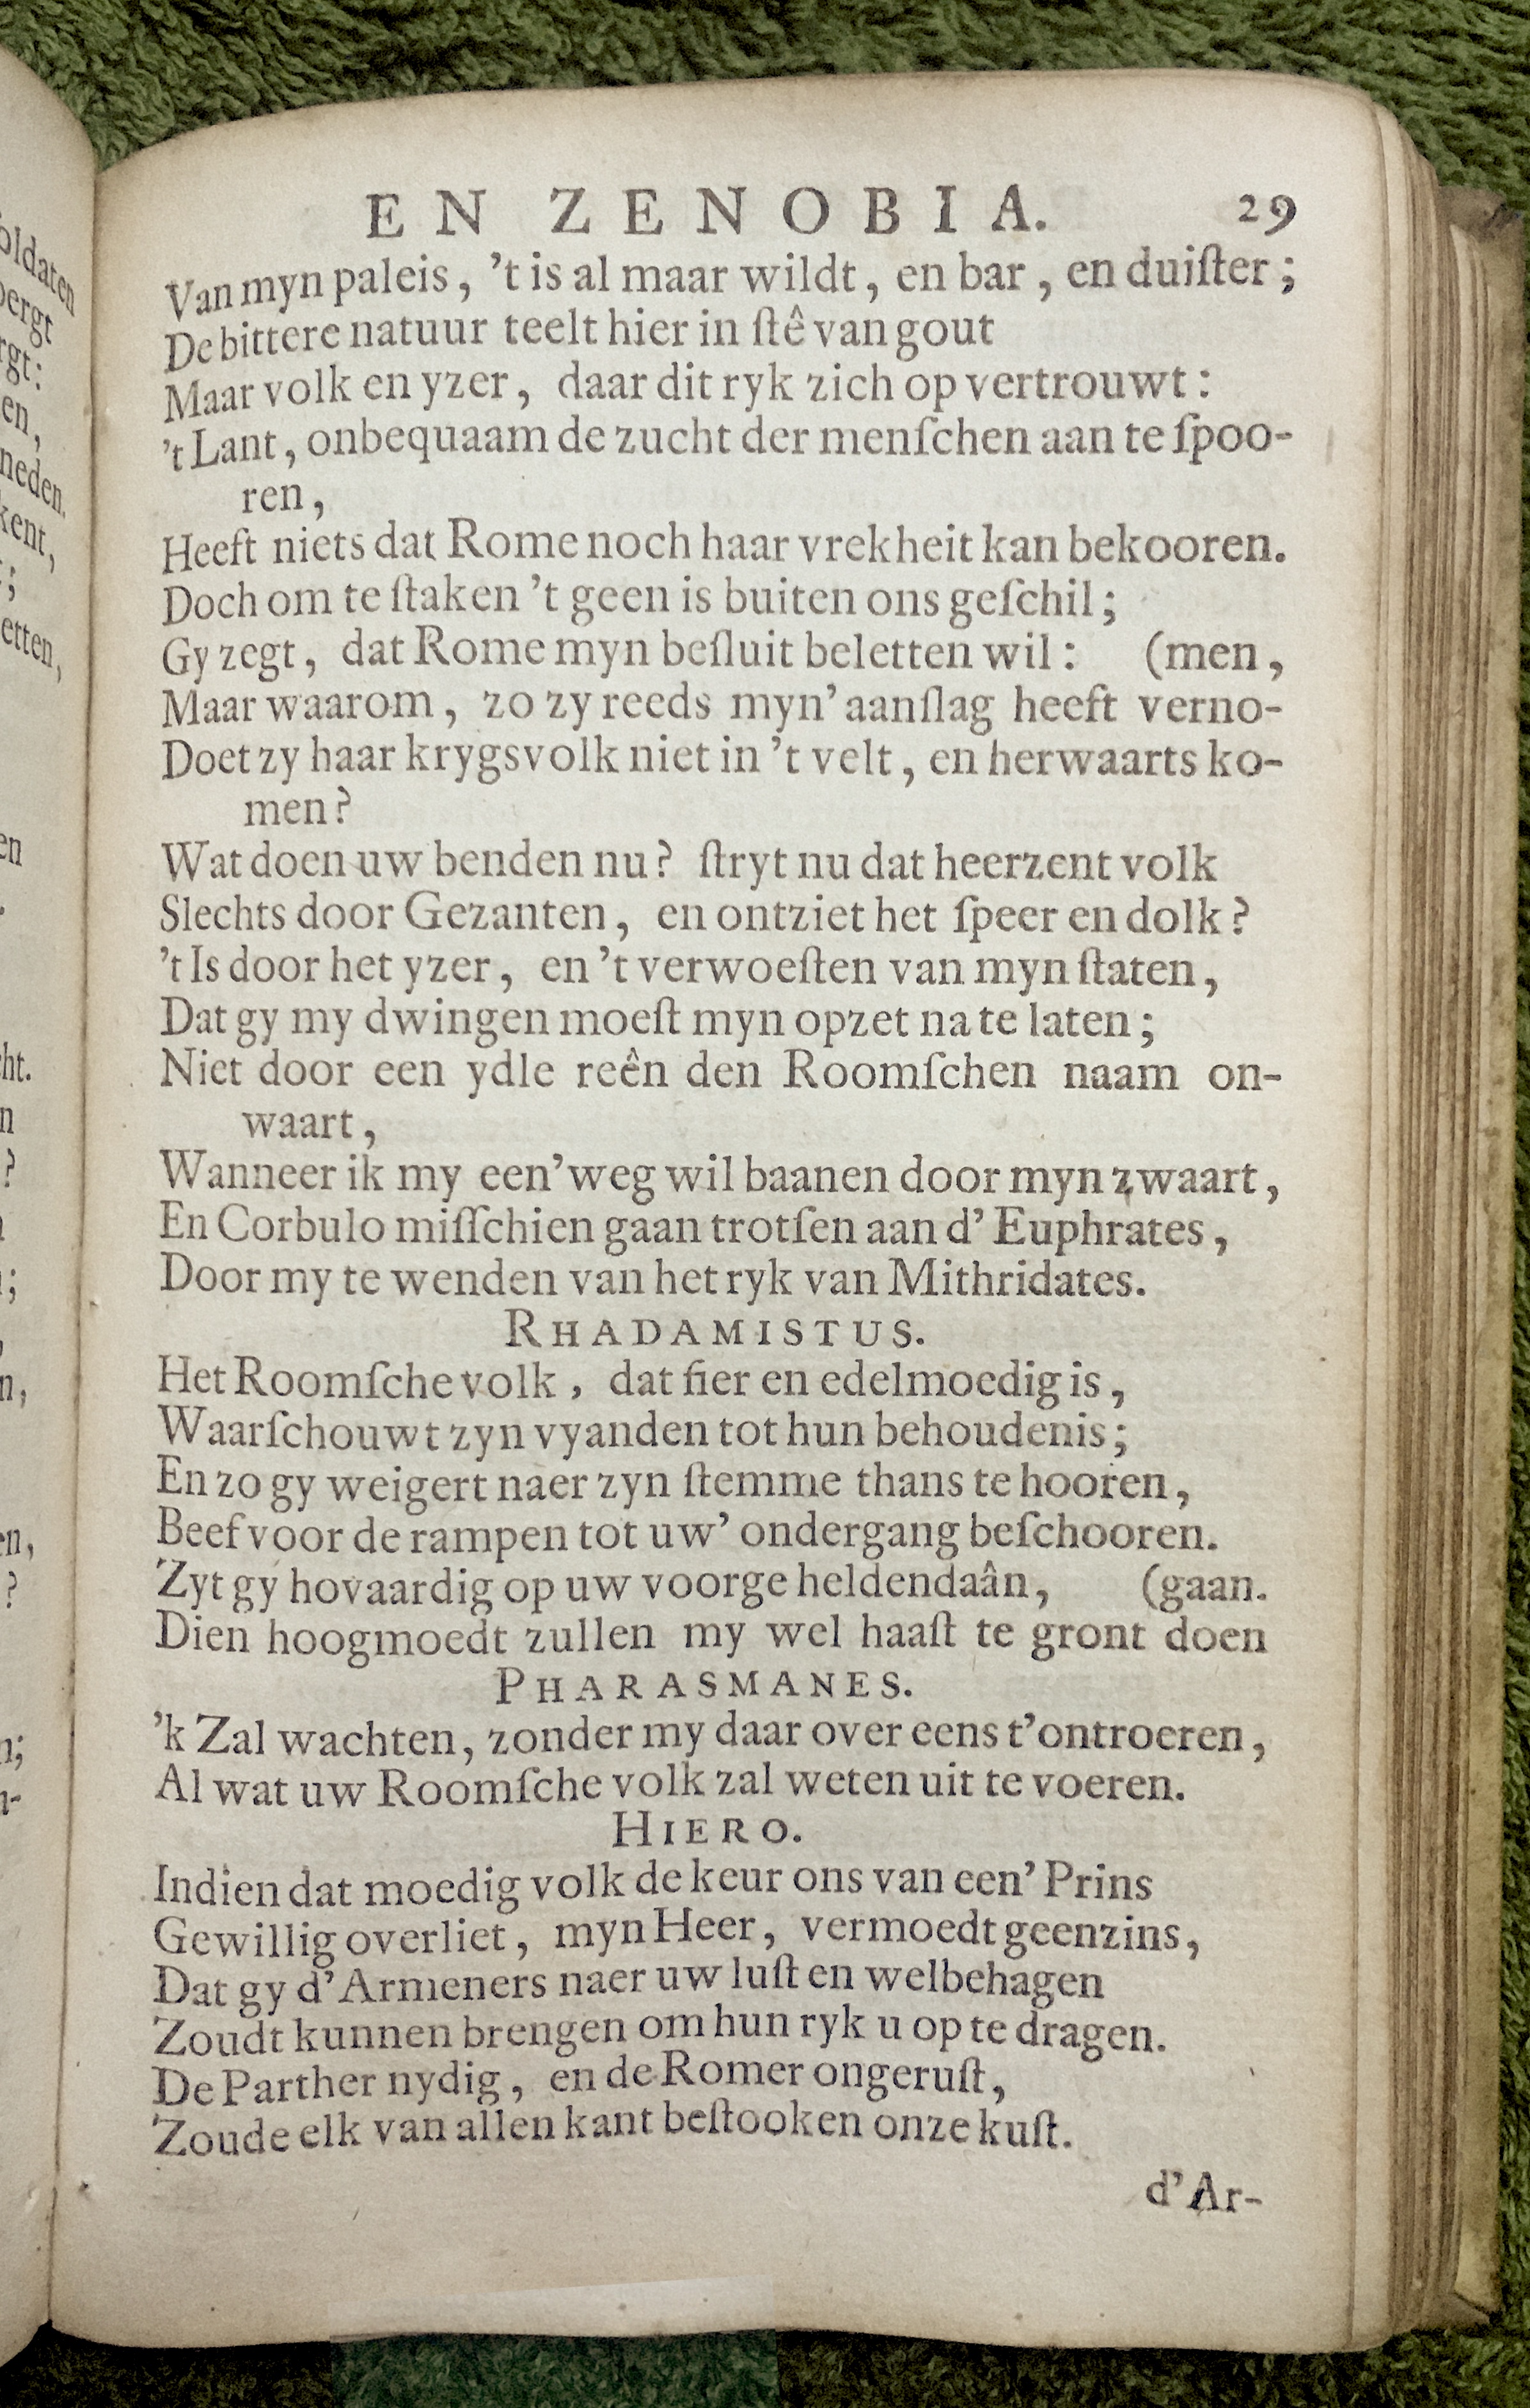 EN ZENOBIA. 29
Van myn paleis, 't is al maar wildt, en bar, en duiſter;
De bittere natuur teelt hier in ſtê van gout
Maar volk en yzer, daar dit ryk zich op vertrouwt:
't Lant, onbequaam de zucht der menſchen aan te ſpoo-
ren,
Heeft niets dat Rome noch haar vrekheit kan bekooren.
Doch om te ſtaken 't geen is buiten ons geſchil;
Gy zegt, dat Rome myn beſluit beletten wil: (men,
Maar waarom, zo zy reeds myn' aanſlag heeft verno-
Doet zy haar krygsvolk niet in 't velt, en herwaarts ko-
men?
Wat doen uw benden nu? ſtryt nu dat heerzent volk
Slechts door Gezanten, en ontziet het ſpeer en dolk?
't Is door het yzer, en 't verwoeſten van myn ſtaten,
Dat gy my dwingen moeſt myn opzet na te laten;
Niet door een ydle reên den Roomſchen naam on-
waart,
Wanneer ik my een' weg wil baanen door myn zwaart,
En Corbulo miſſchien gaan trotſen aan d' Euphrates,
Door my te wenden van het ryk van Mithridates.
RHADAMISTUS.
Het Roomſche volk, dat fier en edelmoedig is,
Waarſchouwt zyn vyanden tot hun behoudenis;
En zo gy weigert naer zyn ſtemme thans te hooren,
Beef voor de rampen tot uw' ondergang beſchooren.
Zyt gy hovaardig op uw voorge heldendaân, (gaan.
Dien hoogmoedt zullen my wel haaſt te gront doen
PHARASMANES.
'k Zal wachten, zonder my daar over eens t'ontroeren,
Al wat uw Roomſche volk zal weten uit te voeren.
HIERO.
Indien dat moedig volk de keur ons van een' Prins
Gewillig overliet, myn Heer, vermoedt geenzins,
Dat gy d'Armeners naer uw luſt en welbehagen
Zoudt kunnen brengen om hun ryk u op te dragen.
De Parther nydig, en de Romer ongeruſt,
Zoude elk van allen kant beſtooken onze kuſt.
d'Ar-